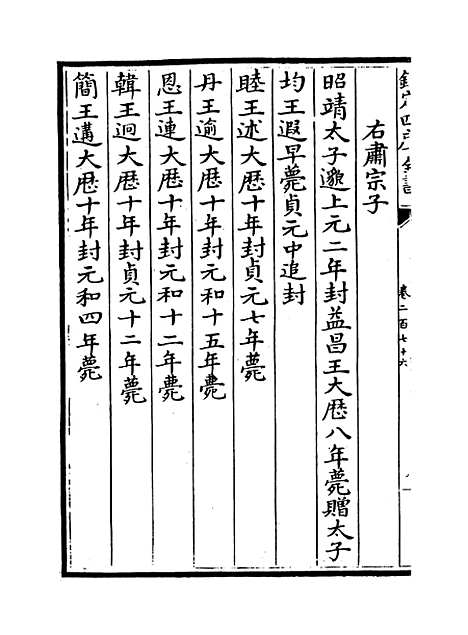 欽定四庫全書
卷二百七十六
右肅宗子
昭靖太子邈上元二年封益昌王大厯八年薨贈太子
均王遐早薨貞元中追封
睦王述大厯十年封貞元七年薨
丹王逾大厯十年封元和十五年薨
恩王連大厯十年封元和十二年薨
韓王迥大厯十年封貞元十二年薨
簡王遘大厯十年封元和四年薨